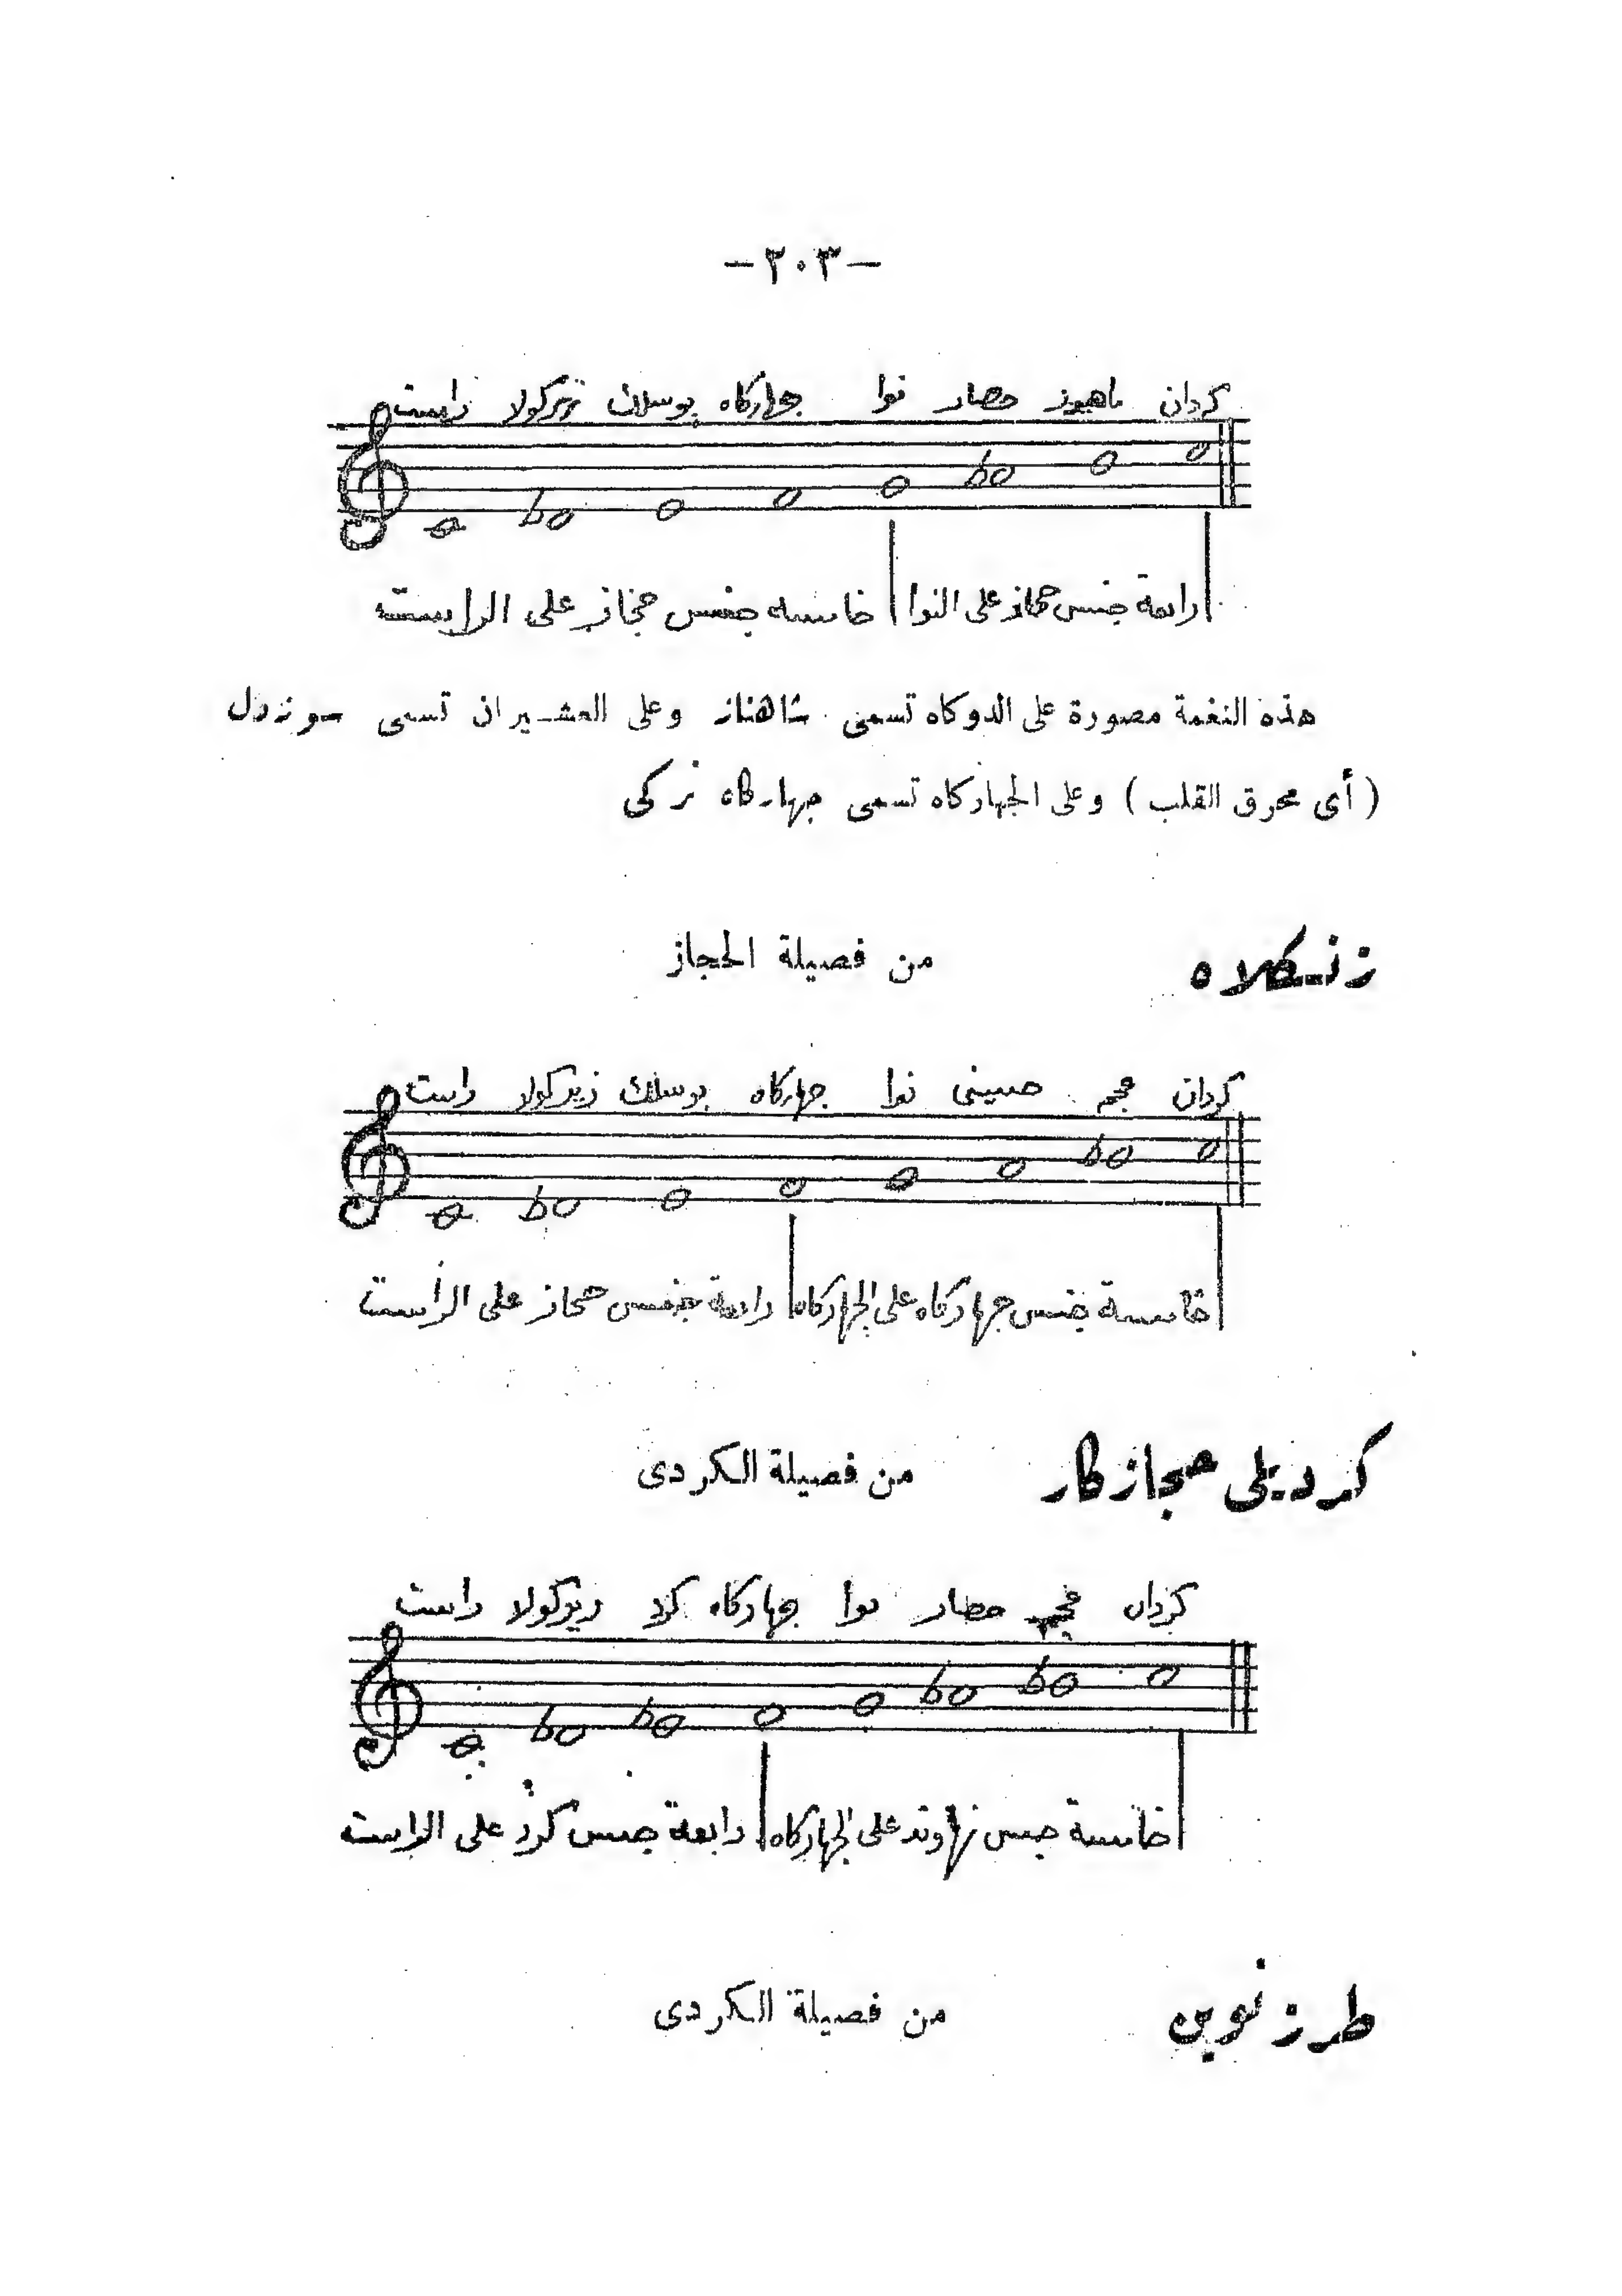 -٢٠٣-
كردان ماهور حصار نوا جهاركاه بوسلك زيركولا راست
رابعة جنس حجاز على النوا خامسة جنس حجاز على الراست
هذه النغمة مصورة على الدوكاه تسمى شاهناز وعلى العشيران تسمى سوزدل
( أى محرق القلب ) وعلى الجهاركاه تسمى جهاركاه تركى
زنكلاه من فصيلة الحجاز
كردان عجم حسينى نوا جهاركاه بوسلك زيركولا راست
خامسة جنس جهاركاه على الجهاركاه رابعة جنس حجاز على الراست
كرديلى حجازكار من فصيلة الكردى
كردان عجم حصار نوا جهاركاه كرد زيركولا راست
خامسة جنس نهاوند على الجهاركاه رابعة جنس كرد على الراست
طرزنوين من فصيلة الكردى